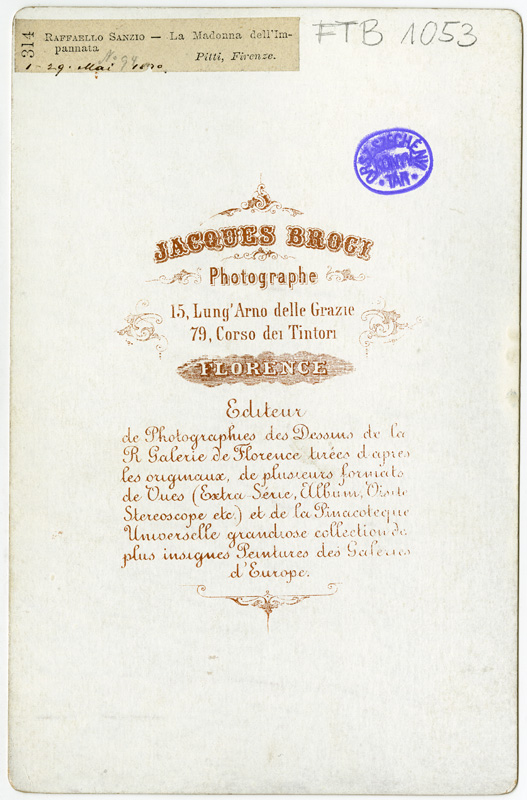 314
RAFFAELLO SANZIO — La Madonna dell'Im-
pannata
Pitti, Firenze.
1-29. Mai
FTB 1053
ORSZ. SZÉCHÉNYI
KÖNYV
TÁR
JACQUES BROGI
Photographe
15, Lung'Arno delle Grazie
79, Corso dei Tintori
FLORENCE
Editeur
de Photographies des Dessins de la
R. Galerie de Florence tirées d'après
les originaux, de plusieurs formats
de Vues (Extra-Série, Album, Visite
Stereoscope etc.) et de la Pinacoteque
Universelle grandiose collection de
plus insignes Peintures des Galeries
d'Europe.